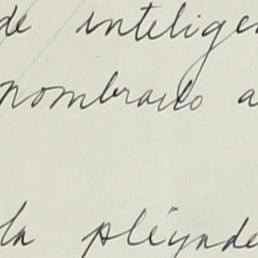 de intelige
nombrado a
la pléyade